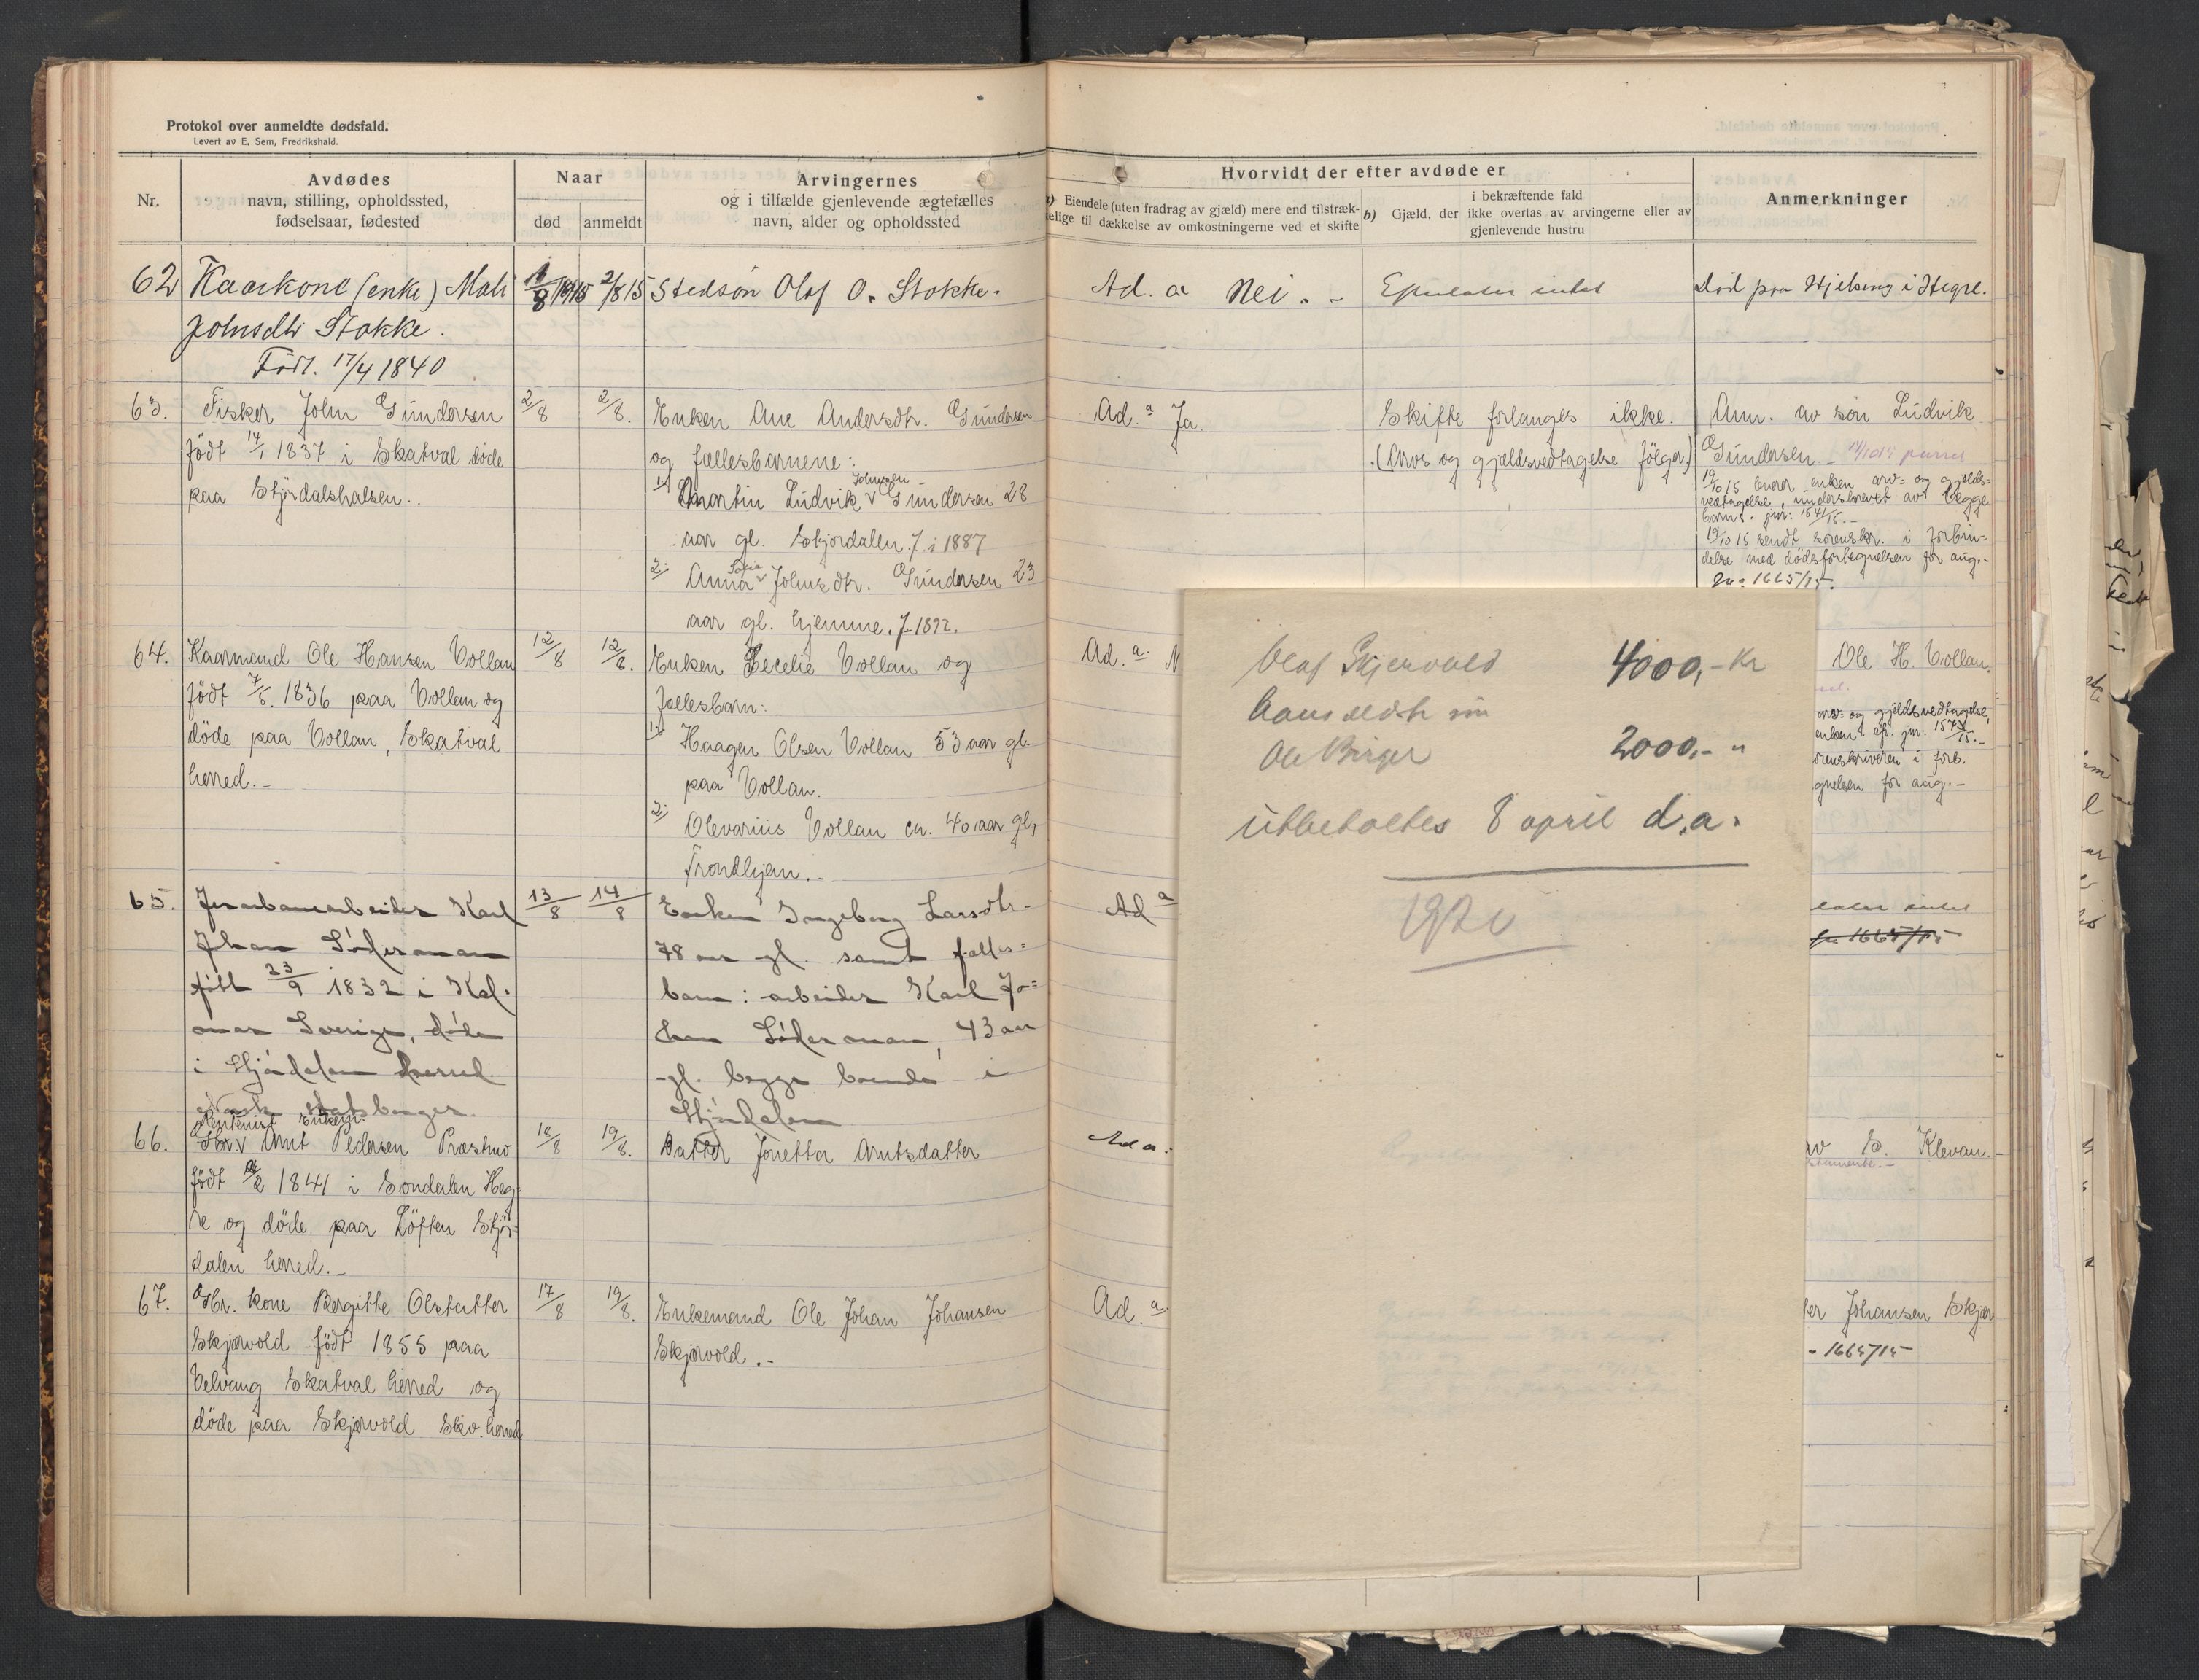 Protokol over anmeldte dødsfald.
Levert av E. Sem, Fredrikshald.
Nr.
Avdødes
navn, stilling, opholdssted,
fødselsaar, fødested
Naar
død
anmeldt
Arvingernes
og i tilfælde gjenlevende ægtefælles
navn, alder og opholdssted
Hvorvidt der efter avdøde er
Eiendele (uten fradrag av gjæld) mere end tilstræk-
kelige til dækkelse av omkostningerne ved et skifte
b) Gjæld, der
i bekræftende fald
ikke overtas av arvingerne eller av
gjenlevende hustru
Anmerkninger
62 Kaarkone (enke) Mali
Johnsdtr Stokke.
Født. 17/4 1840
1/8 1915
2/8 15
Stedsøn Olaf O. Stokke.
Ad. a Nei. -
intet
Død paa Hjelseng i Hegre.
63. Fisker John Gundersen
født 14/1 1837 i Skatval døde
paa Stjørdalshalsen..
2/8
2/8.
Enken Ane Andersdtr. Gundersen
og fællesbarnene:
1) Martin Ludvik Johnsen Gundersen 28
aar gl. Stjørdalen. f. i 1887
2; Anna Sofie Johnsdtr. Gundersen 23
aar gl. hjemme. f. 1892.
Ad. a Ja.
Skifte forlanges ikke.
(Arvs og gjældsvedtagelse følger)
Anm. av søn Ludvik
Gundersen -
19/10 15 enken arv- og gjelds-
vedtagelse, underskrevet av begge
barn. jnr: 1541/15. -
19/10 15 sendt sorenskr. i forbin-
delse med dødsfortegnelsen for aug.-
Jnr 1665/15.
64. Kaarmand Ole Hansen Vollan
født 7/5. 1836 paa Vollan og
døde paa Vollan, Skatval
herred.-
12/8
12/8.
Enken Cecelie Vollan og
fællesbarn:
1) Haagen Olsen Vollan 53 aar gl.
paa Vollan.
2; Olevarius Vollan ca. 40 aar gl,
Trondhjem..
Ad. a. N
Ole H. Vollan.
arv- og gjeldsvedtagelse,
enken jnr: 1573/15.-
orenskriveren i forb.
gnelsen for aug.-
65. Jernbanearbeider Karl
Johan Söderman
født 23/9 1832 i Kal-
mar Sverige, døde
i Stjørdalen herred.
Norsk statsborger.
13/8
14/8
Enken Ingeborg Larsdtr.
78 aar gl. samt fælles=
barn: arbeider Karl Jo=
han Söderman, 43 aar
gl. begge boende i
Stjørdalen
Ad a
intet
Jnr 1665/15
66. Rentenist Enkem.
Arnt Pedersen Præstmo
født 1841 i Sondalen Heg-
re og døde paa Løften Stjør-
dalen herred.-
18/8
19/8.
Datter Jonetta Arntsdatter
Ad a:
av E. Klevan.-
67. Gbr. kone Bergitte Olsdatter
Skjervold født 1855 paa
Velvang Skatval herred og
døde paa Skjervold Skv. herred
17/8
19/8.
Enkemand Ole Johan Johansen
Skjervold.-
Ad. a.
er Johansen Skjer
- 1665/15
Olaf Skjervold 4000,- Kr
hans
Ole Birger 2000,- "
utbetaltes 8 april d.a.
1920